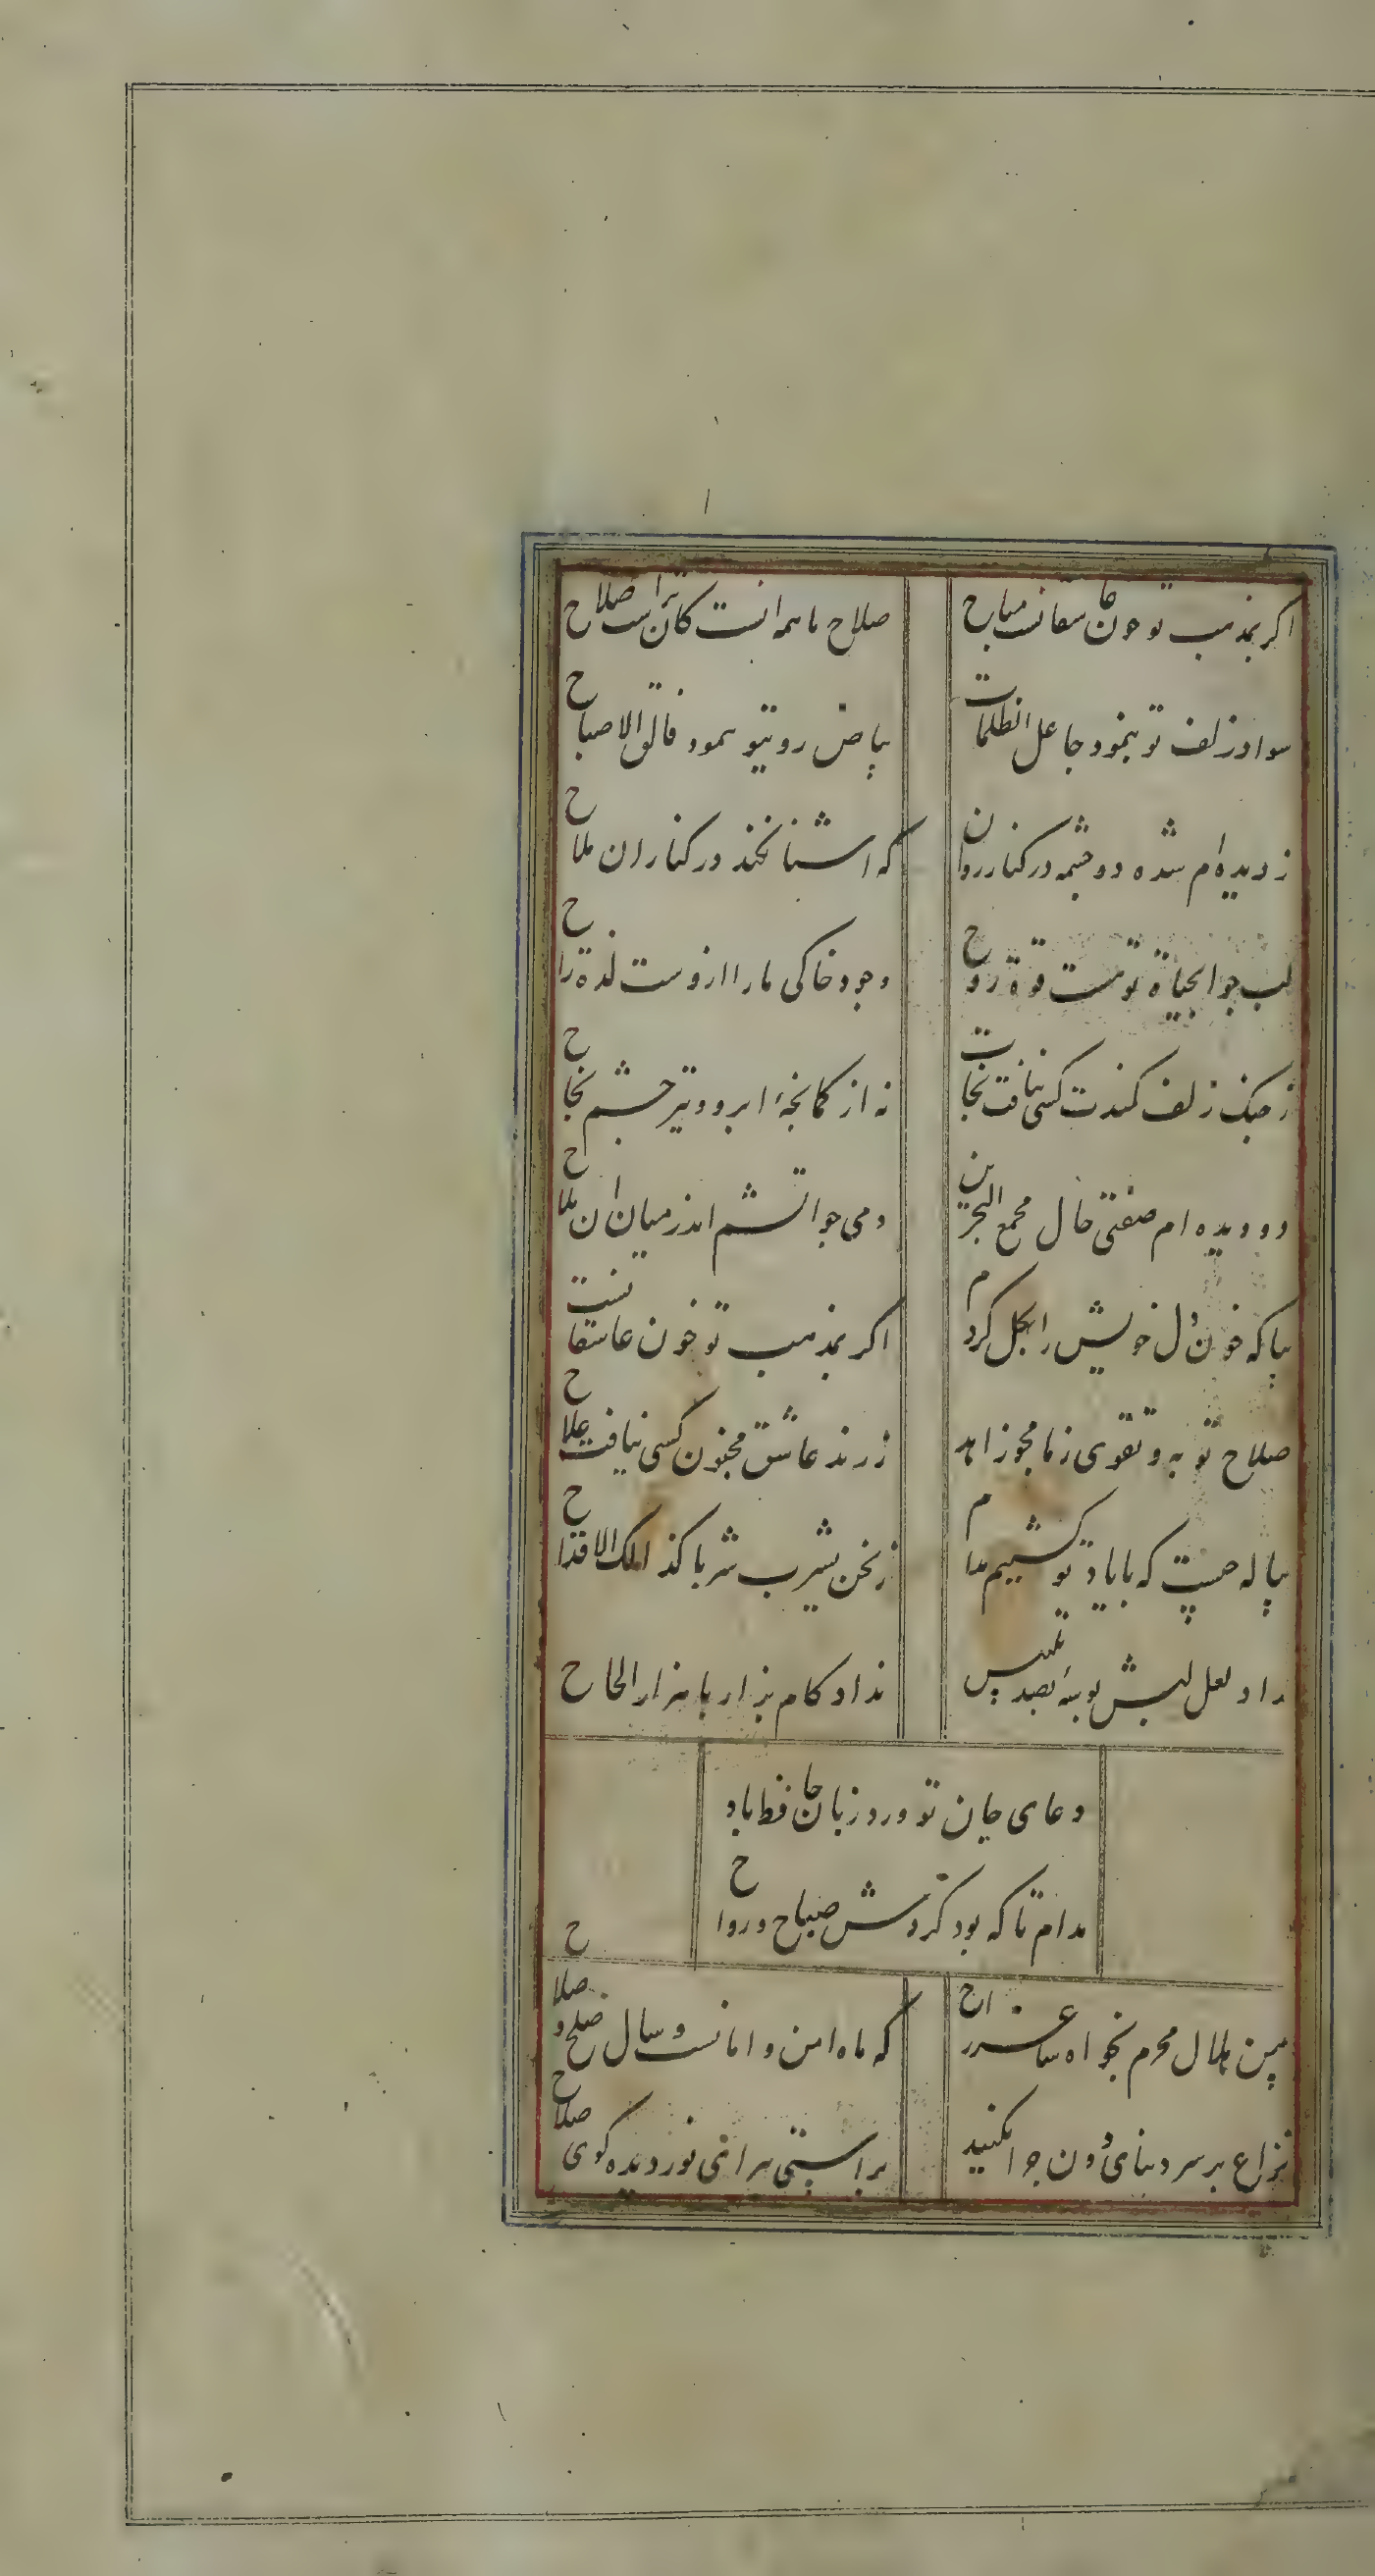 اگر بمذهب تو خون عاشقانست مباح
صلاح ما همه انست کان تراست صلاح
سواد زلف تو بنمود جاعل الظلمات
بیاض روی تو بنمود فالق الاصباح
ز دیده‌ام شده دو چشمه در کنار روان
که اشنا نکند در کنار ان ملاح
لب چو ابحیاة تو هست قوة روح
وجود خاکی ما را ازوست لذة راح
ز چنک زلف کمندت کسی نیافت نجات
نه از کمانچهٔ ابرو و تیر چشم نجاح
دو دیده ام صفتی حال مجمع البحرین
دمی جو اتشم اندر میان ان ملاح
بیا که خون دل خویش را بحل کردم
اگر بمذهب تو خون عاشقانست
صلاح توبه و تقوی ز ما مجو زاهد
ز رند عاشق مجنون کسی نیافت علاح
پیاله چیست که با یاد تو کشیم مدام
نحن نشرب شربا کذالک الاقداح
نداد لعل لبش بوسهٔ بصد تلبیس
نداد کام بزار با هزار الحاح
دعای جان تو ورد زبان حافظ باد
مدام تا که بود گردش صباح و رواح
ببین هلال محرم بخواه ساغر راح
که ماه امن و امانست و سال صلح و صلاح
نزاع بر سر دنیای دون چرا مکنید
براستی براانی نور دیده گوی صلاح